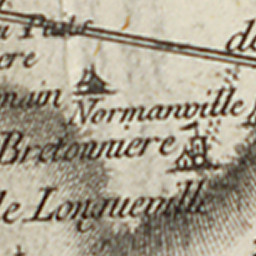 u Plats
ere
de
main
Normanville
Bretonniere
le Longueville